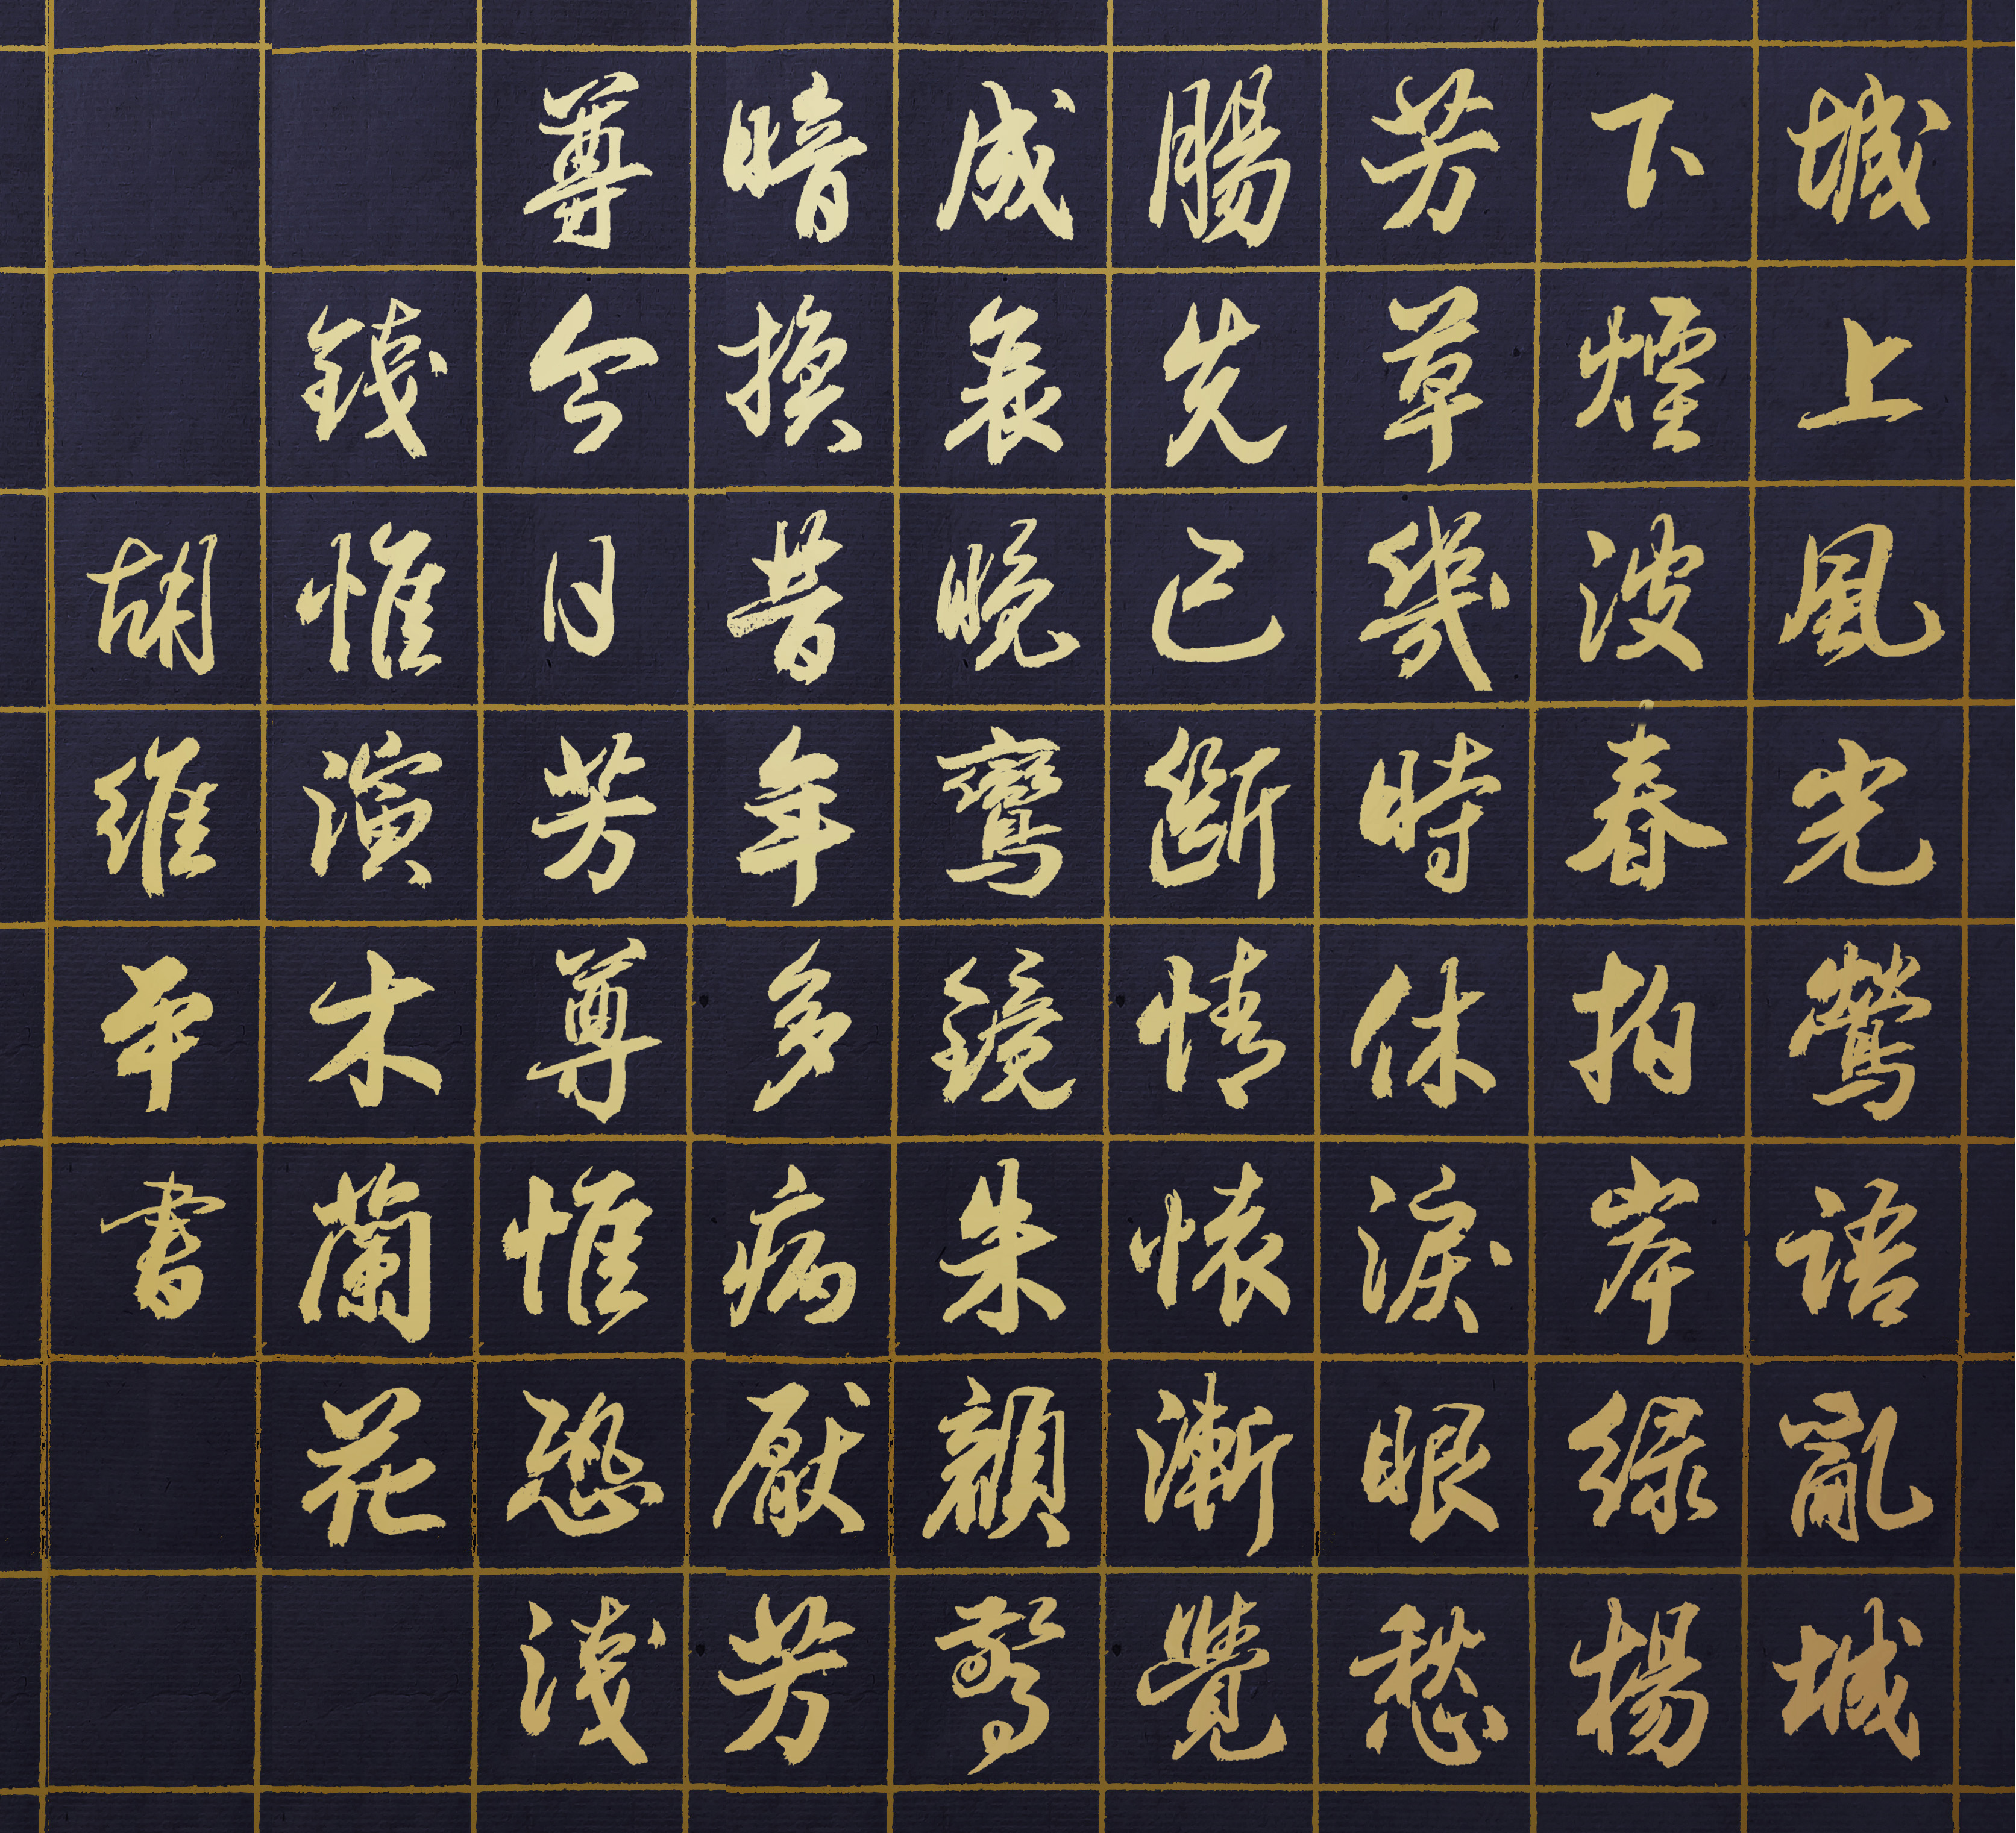 城上風光鶯語亂城
下煙波春拍岸綠楊
芳草幾時休淚眼愁
腸先已斷情懷漸覺
成衰晚鸞鏡朱顏驚
暗換昔年多病厭芳
尊今日芳尊惟恐淺
錢惟演木蘭花
胡維平書